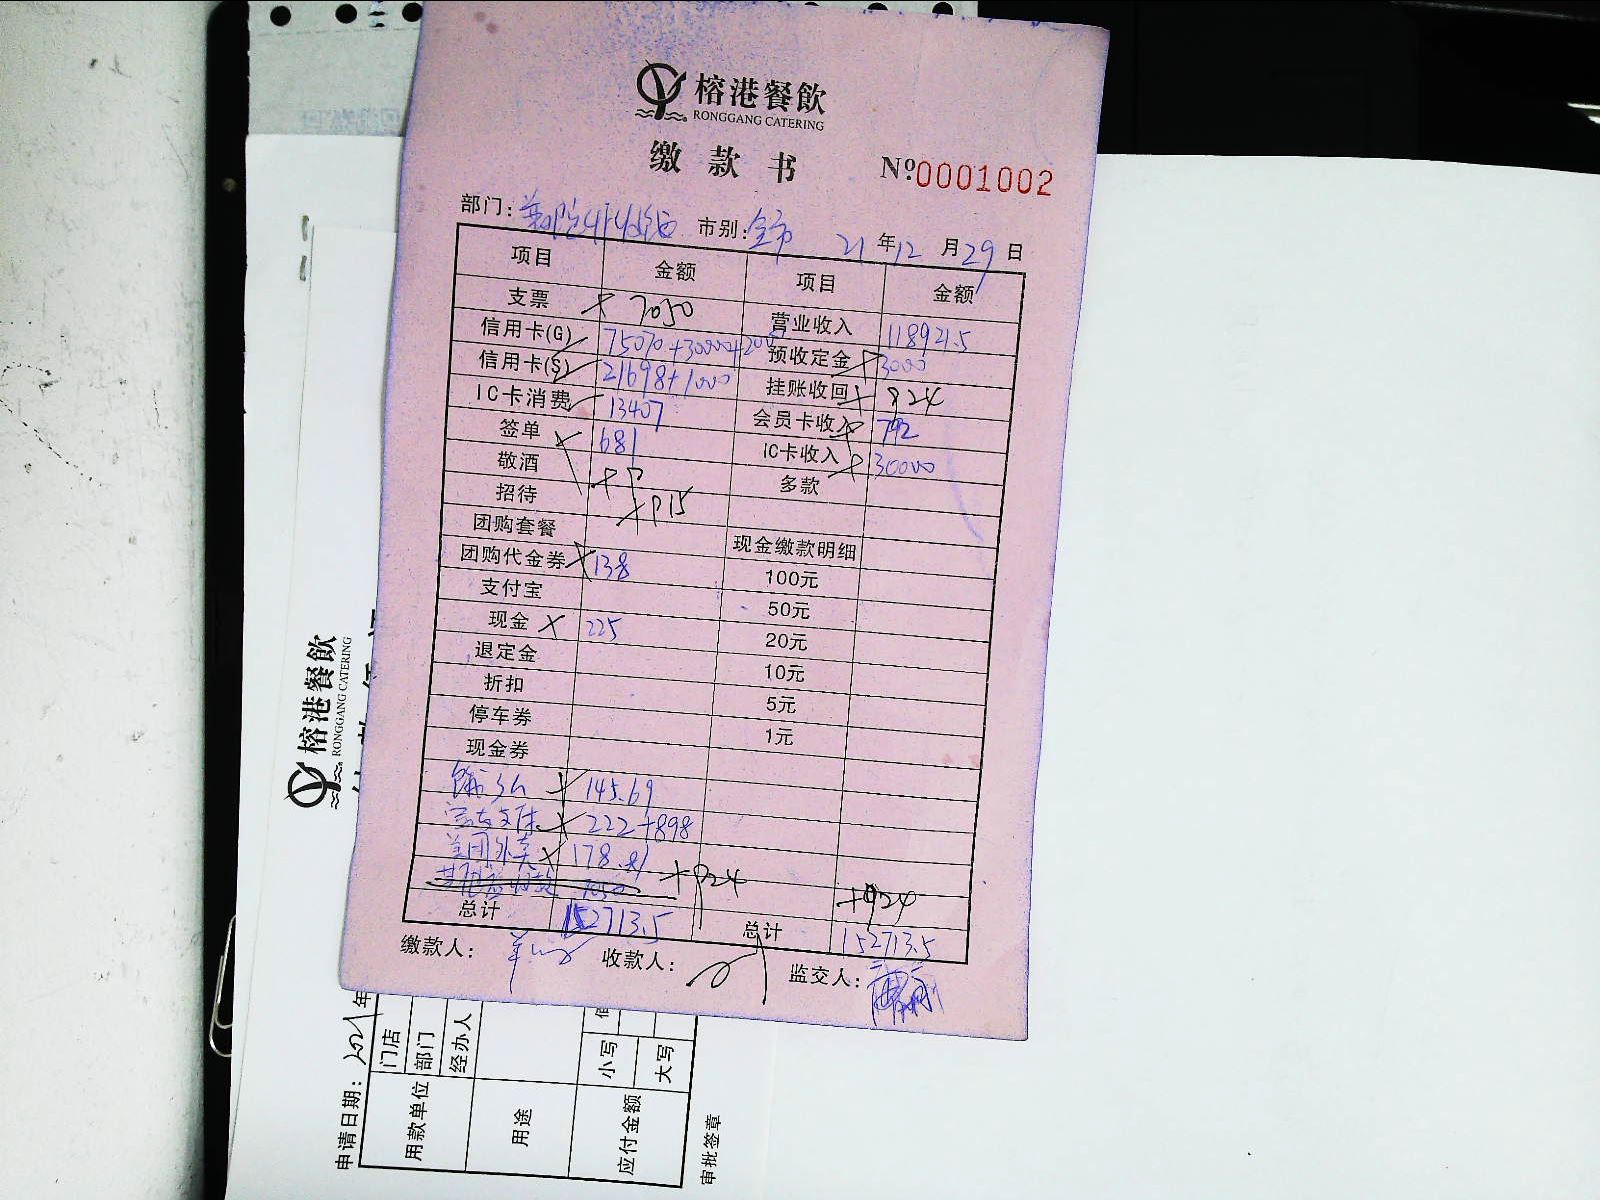 榕港餐飲
RONGGANG CATERING
缴款书 №0001002
部门: 市别: 全市 21年12月29日
项目 金额 项目 金额
支票 7050 营业收入 118921.5
信用卡(G) 75070+30000+2000 预收定金 3000
信用卡(S) 21698+1000 挂账收回 924
IC卡消费 13407 会员卡收入 792
签单 681 IC卡收入 30000
敬酒 多款
招待
团购套餐 现金缴款明细
团购代金券 138 100元
支付宝 50元
现金 225 20元
退定金 10元
折扣 5元
停车券 1元
现金券
145.69
222+898
美团外卖 178.81
+924 +924
总计 152713.5 总计 152713.5
缴款人: 收款人: 监交人:
榕港餐飲
RONGGANG CATERING
申请日期: 2021年
用款单位 门店
部门
经办人
用途
应付金额 小写
大写
审批签章